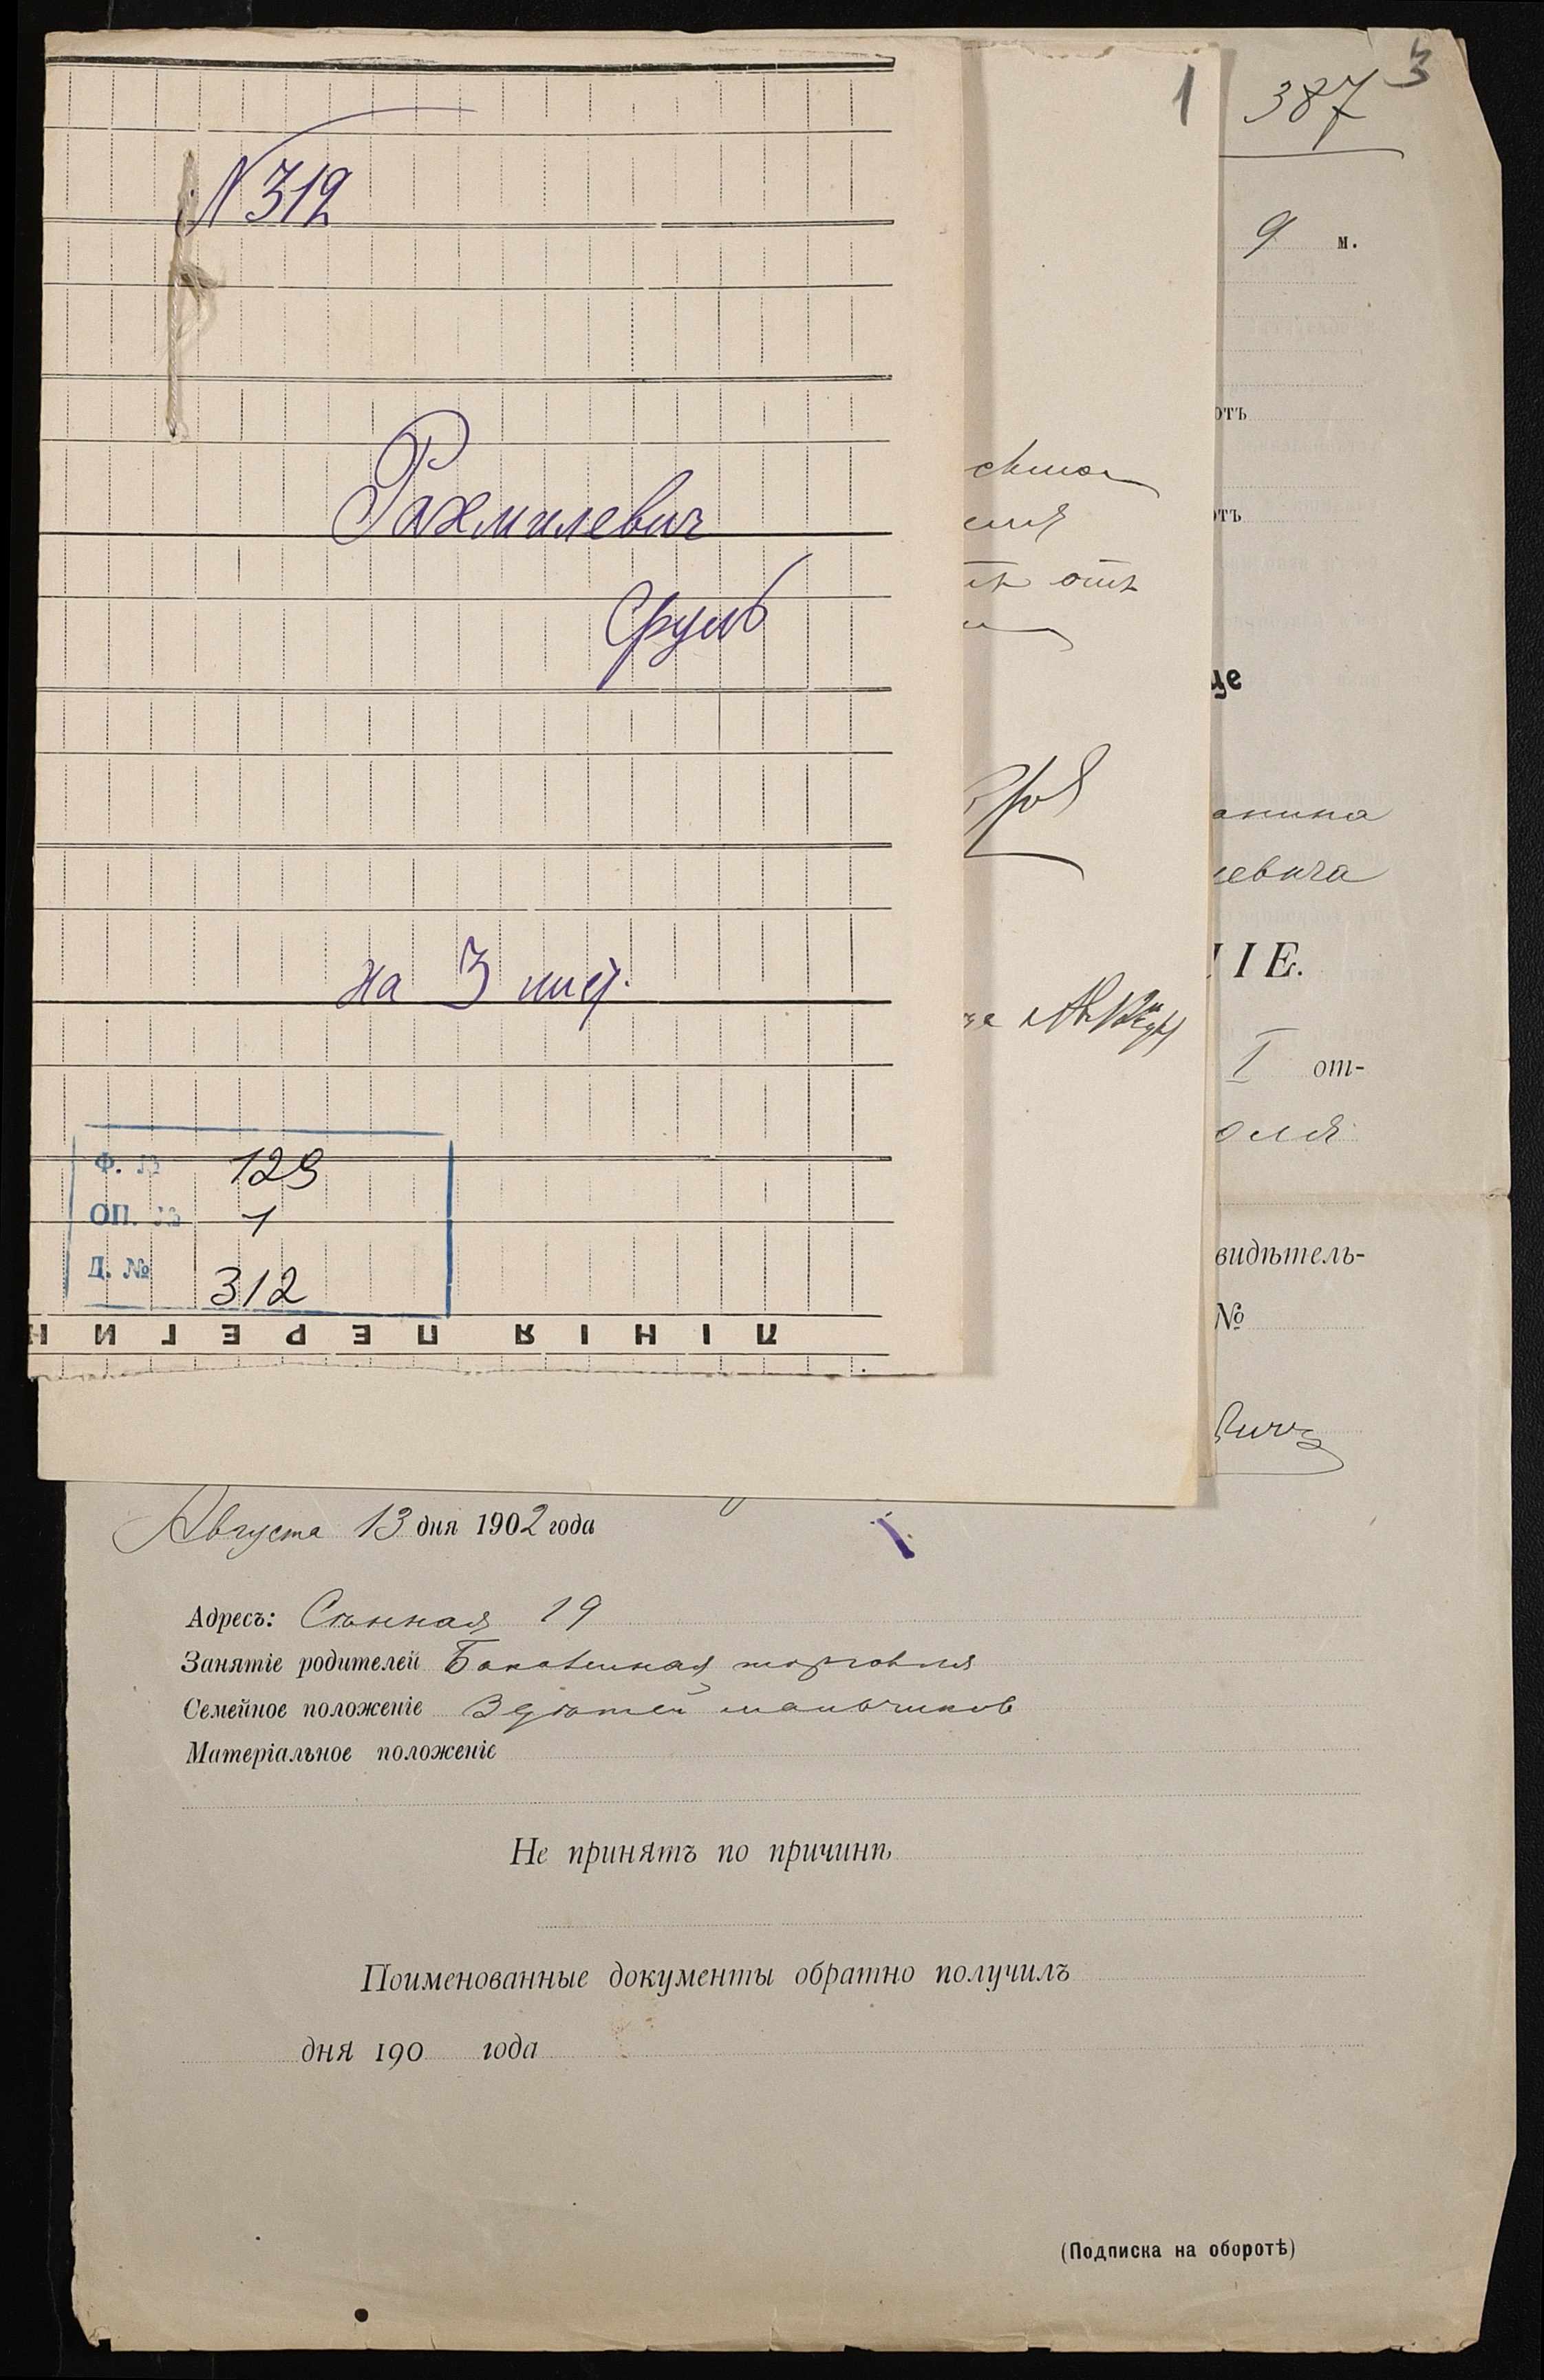 N 312
Рахмилевич
Сруль
на 3 лист.
Ф. № 129
ОП. № 1
Д. № 312
ЛІНІЯ ПЕРЕГИН
1
отъ
387
3
9 м.
отъ
отъ
ще
анина
левича
НІЕ.
I от-
видѣтель-
№
Августа 13 дня 1902 года
Адресъ: Сѣнная 19
Занятіе родителей Бакалейная торговля
Семейное положеніе 3 дѣтей мальчиков
Матеріальное положеніе
Не принятъ по причинѣ
Поименованные документы обратно получилъ
дня 190 года
(Подписка на оборотѣ)